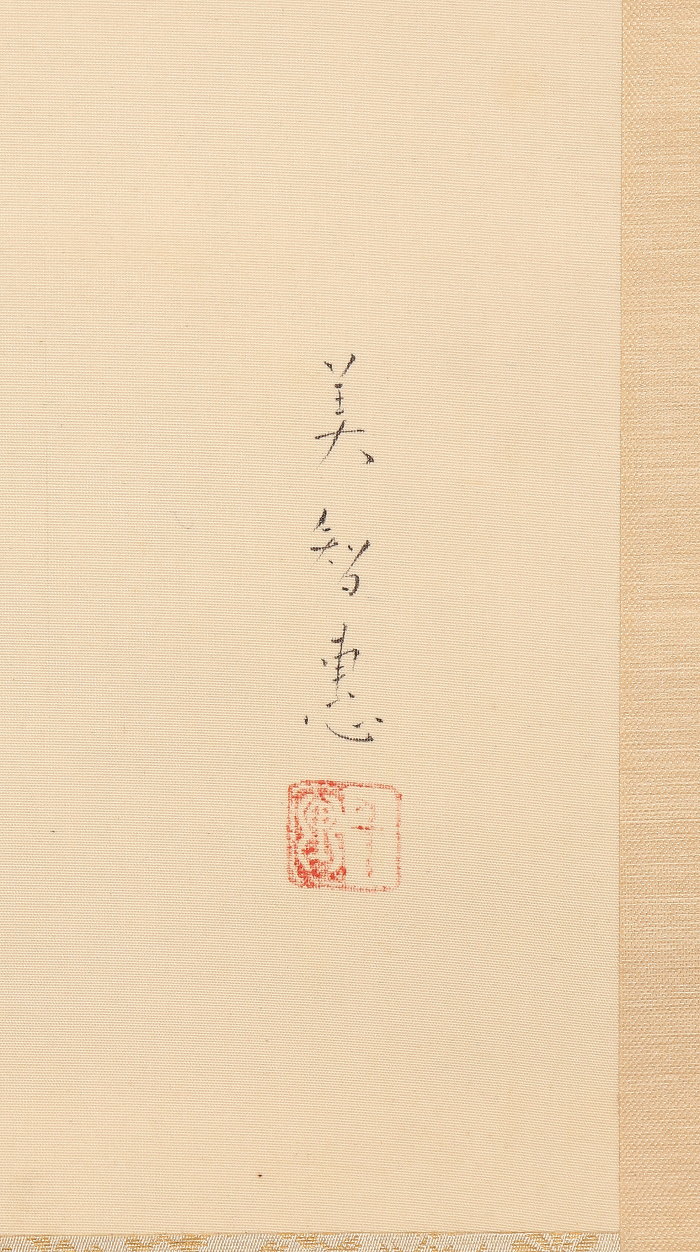 美智恵